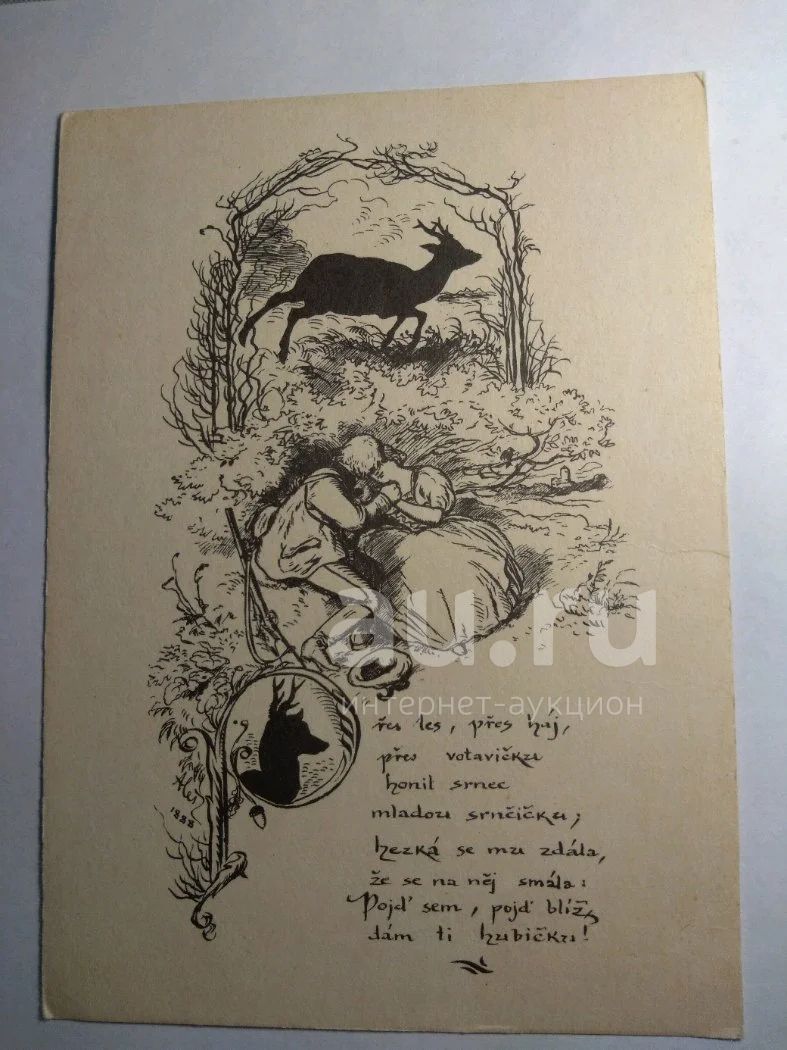 Přes les, přes háj,
přes votavičku
honil srnec
mladou srnčičku;
hezká se mu zdála,
že se na něj smála:
Pojď sem, pojď blíž,
dám ti hubičku!
Aleš
1888
au.ru
интернет-аукцион